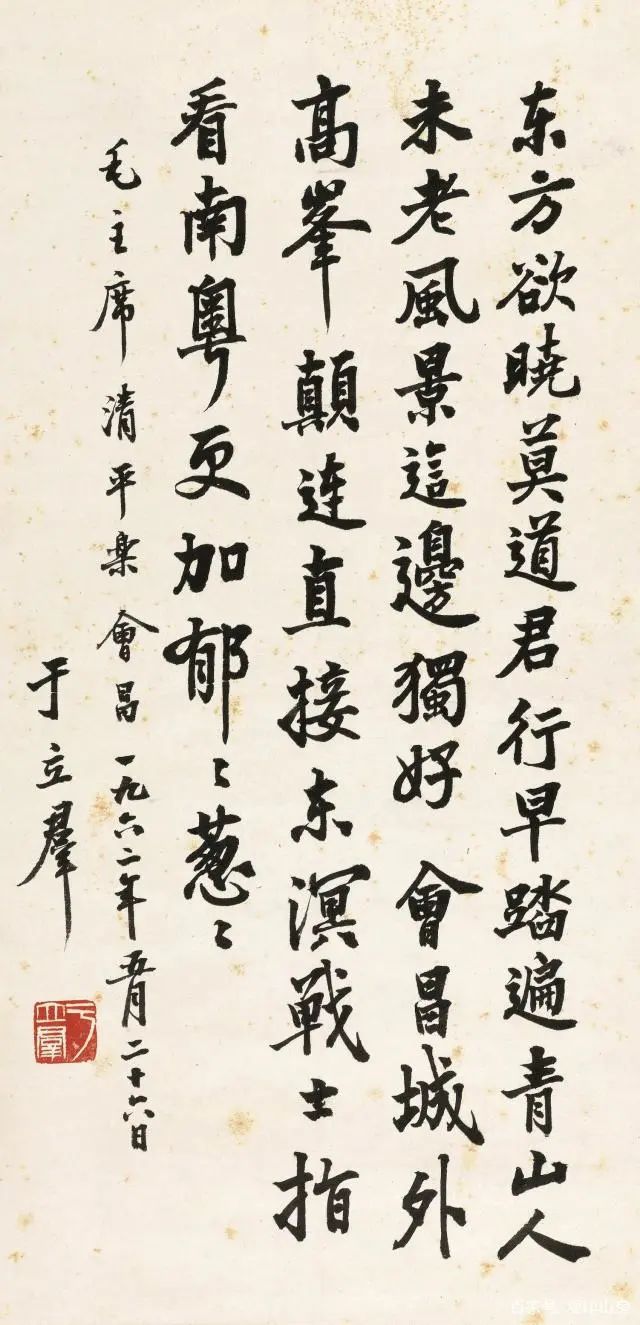 东方欲晓莫道君行早踏遍青山人
未老風景這邊獨好會昌城外
高峯顛連直接东溟戰士指
看南粤更加郁〻葱〻
毛主席清平楽會昌一九六二年五月二十六日
于立羣
于立羣